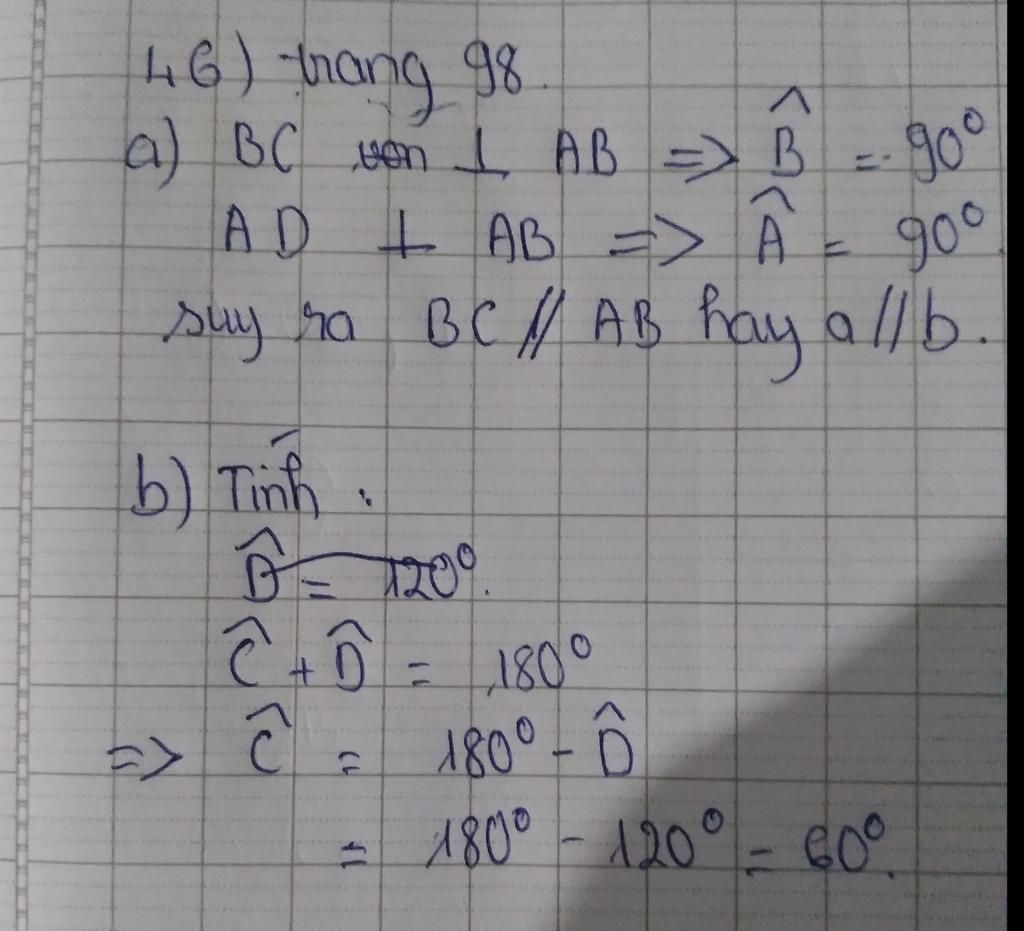 46) trang 98.
a) BC ⊥ AB => B̂ = 90°
AD ⊥ AB => Â = 90°.
suy ra BC // AB hay a // b.
b) Tính :
D̂ = 120°.
Ĉ + D̂ = 180°
=> Ĉ = 180° - D̂
= 180° - 120° = 60°.